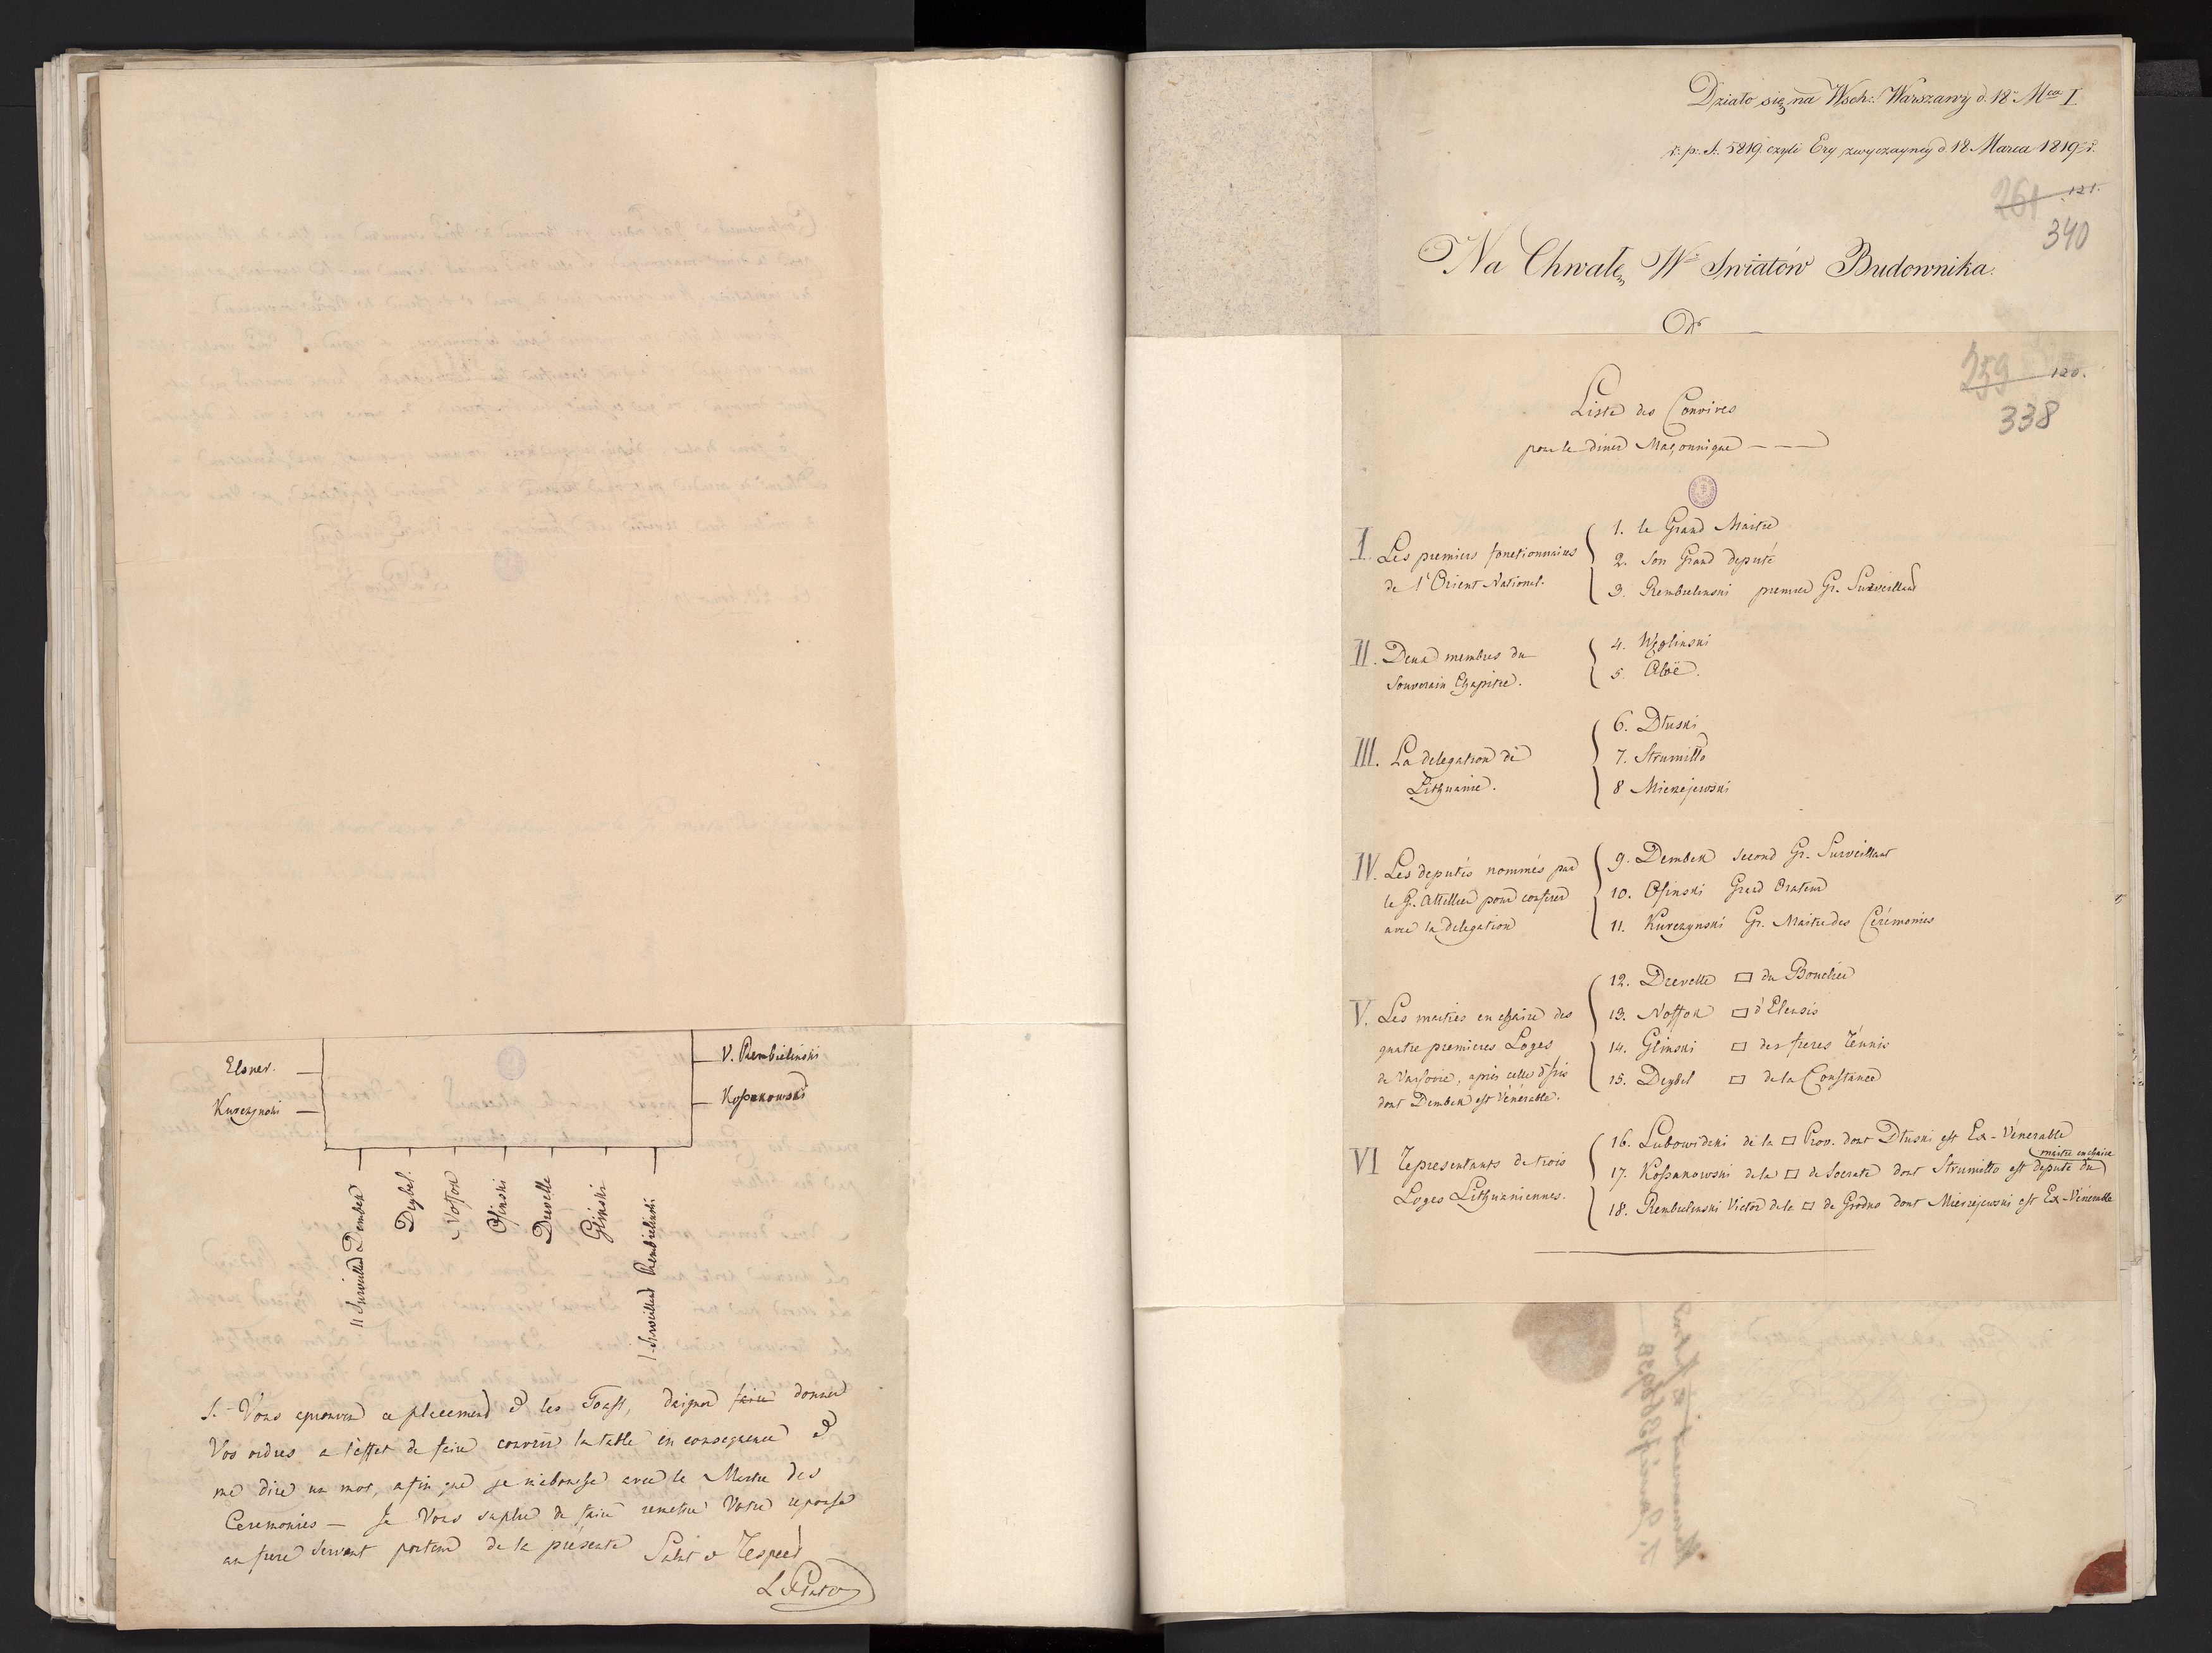 Elsner.
Kurczynski
V. Rembielinski
Kossakowski
II Surveillant Dembek
Deybel.
Nosson
Osinski
Duvelle
Glinski
I. Surveillant Rembielinski
S.- Vous aprouvés ce placement et les Toast, daignez faire donner
Vos ordres a l'effet de faire couvrir la table en consequence et
me dire un mot, afin que je m'abouche avec le Maitre des
Ceremonies — Je Vous suplie de faire remetre Votre reponse
au frere Servant porteur de la présente Salut et Respect
Działo się na Wsch: Warszawy d. 18 Mca I
r. p. S. 5819. czyli Ery zwyczayney d 18 Marca 1819 r.
121.
261
340
Na Chwałę W Swiatów Budownika.
Od
259
120.
338
Liste des Convives
pour le diner Maçonnique
I. Les premiers fonctionnaires
de l'Orient National.
1. le Grand Maitre
2. Son Grand deputé
3. Rembielinski premier Gr. Surveillant
II. Deux membres du
Souverain Chapitre.
4. Węglinski
5. Aloë.
III. La delegation de
Lithuanie.
6. Dłuski
7. Strumiłło
8 Mierzejewski
IV. Les deputés nommés par
le G. Attellier pour conferer
avec la delegation
9. Dembek second Gr. Surveillant
10. Osinski Grand Orateur
11. Kurczynski Gr. Maitre des Cerémonies
V. Les maitres en chaire des
quatre premieres Loges
de Varsovie, après celle d'Isis
dont Dembek est Vénerable.
12. Duvelle □ du Bouclier
13. Nosson □ d'Eleusis
14. Glinski □ des freres Réunis
15. Deybel □ de la Constance
VI Representants de trois
Loges Lithuaniennes.
16. Lubowidzki de la □ Prov. dont Dłuski est Ex-Vénerable
maitre en chaire
17. Kossakowski de la □ de Socrate dont Strumiłło est deputé du
18. Rembielinski Victor de la □ de Grodno dont Mierzejewski est Ex-Vénerable